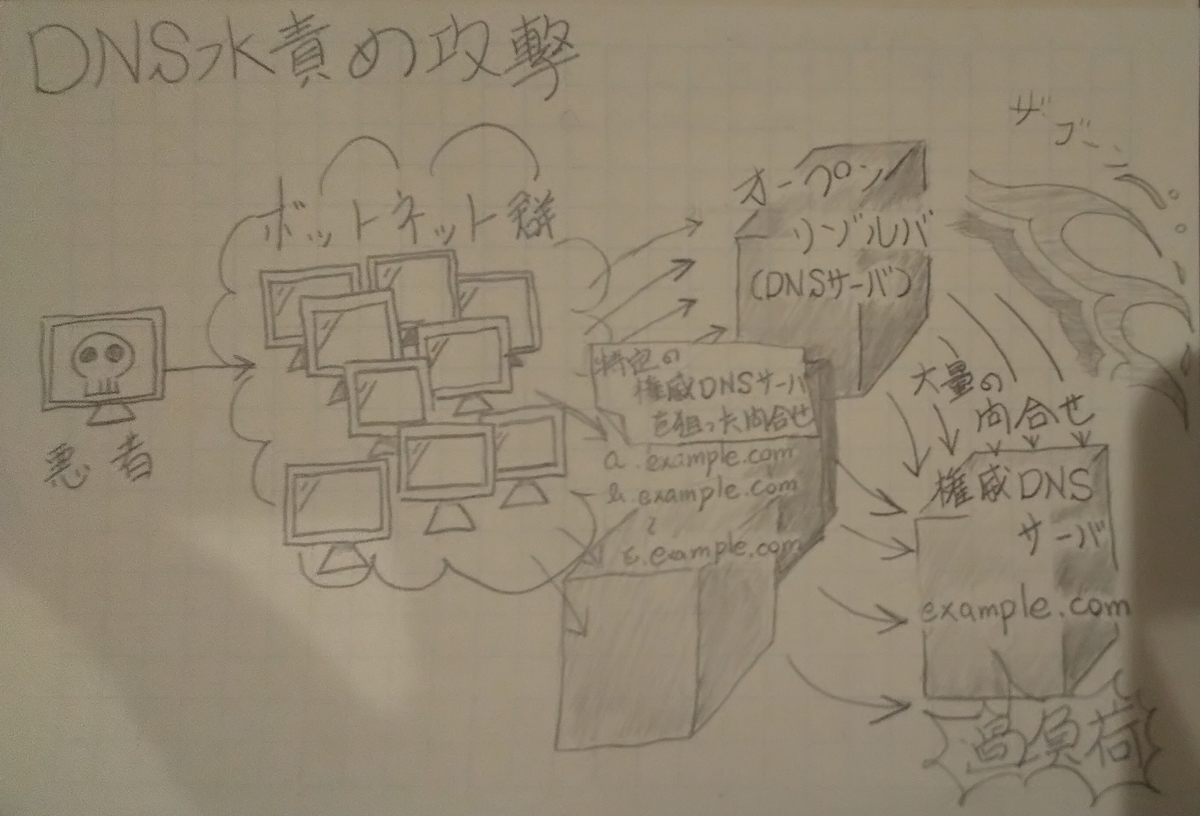 DNS水責め攻撃
ザバーン
ボットネット群
オープン
リゾルバ
(DNSサーバ)
特定の
権威DNSサーバ
を狙った問合せ
a.example.com
b.example.com
～
z.example.com
大量の
問合せ
悪者
権威DNS
サーバ
example.com
高負荷